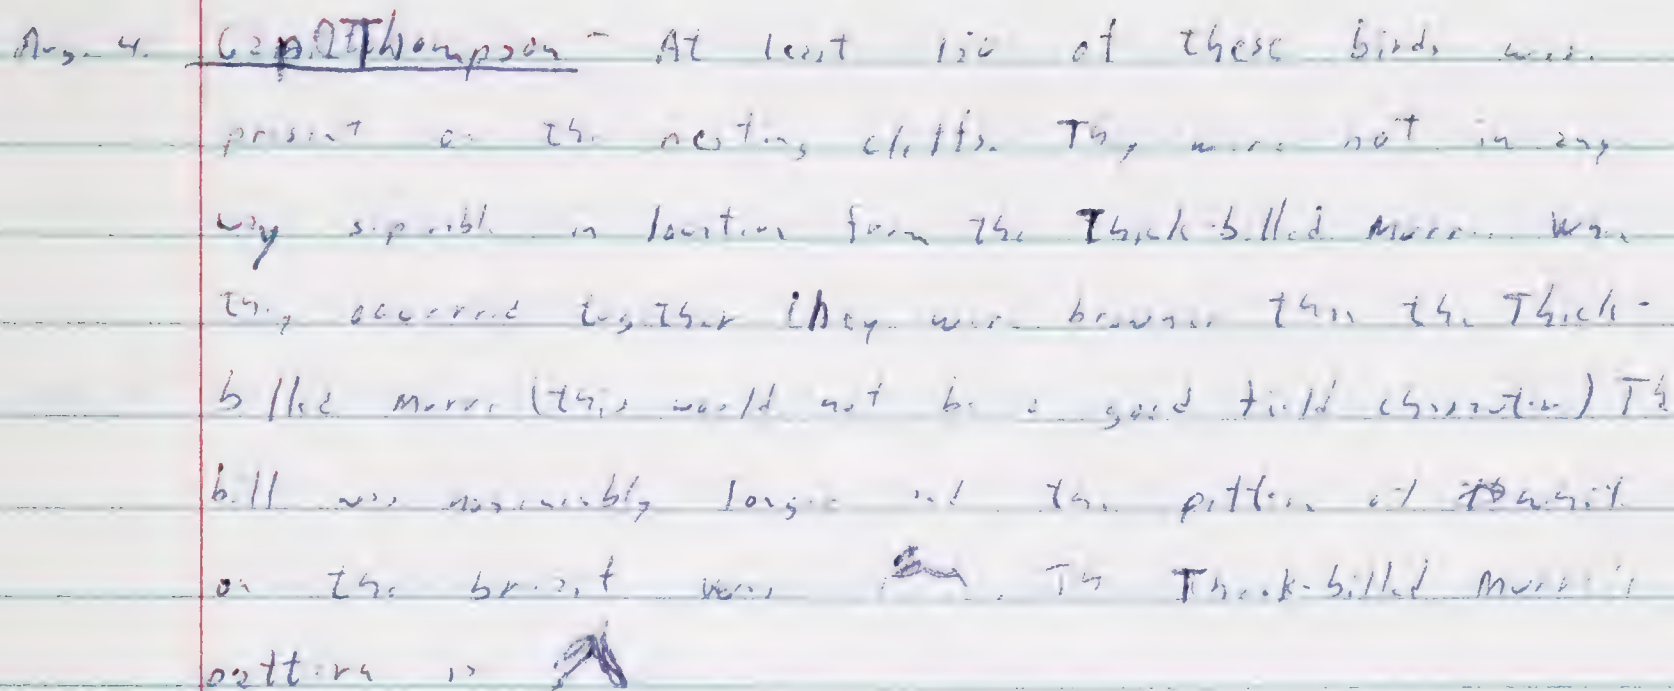 Aug. 4. Cape Thompson - At least 150 of these birds were
present on the nesting cliffs. They were not in any
way separable in location from the Thick-billed Murre. When
they occurred together they were browner than the Thick-
billed Murre (this would not be a good field character) Th
bill was longer and the pattern of white
on the breast was . Th Thick-billed Murre's
pattern is